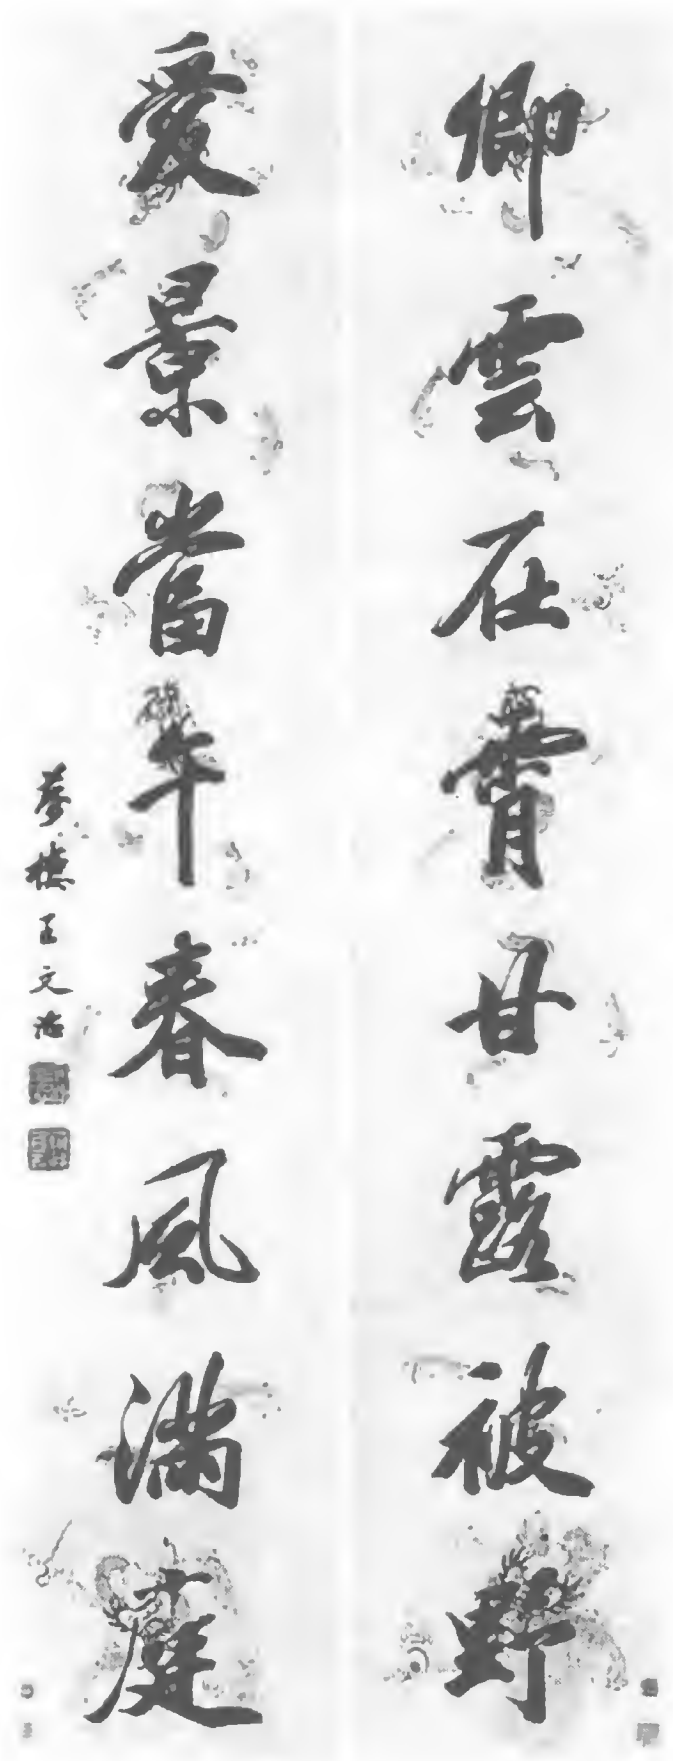 卿雲在霄甘露被野
愛景當午春風滿庭
夢樓王文治